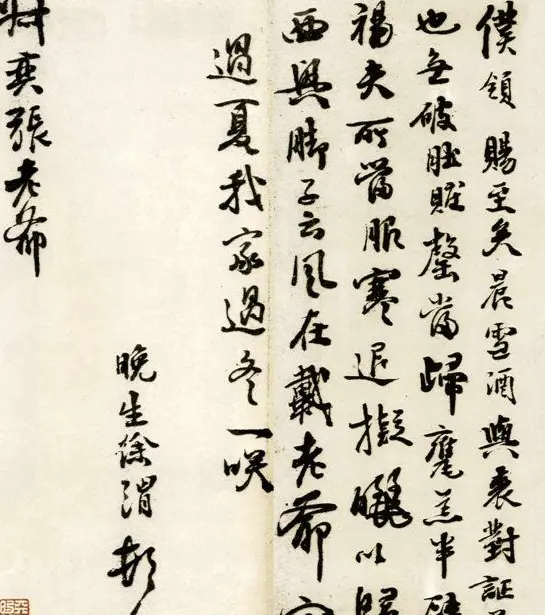 僕領 賜至矣晨雪酒與裘對証
也無破肚賍罄當歸甕羔半
褐夫所當服寒退擬曬以歸
西興脚子云風在戴老爺家
過夏我家過冬一咲
晚生徐渭頓
張老爺